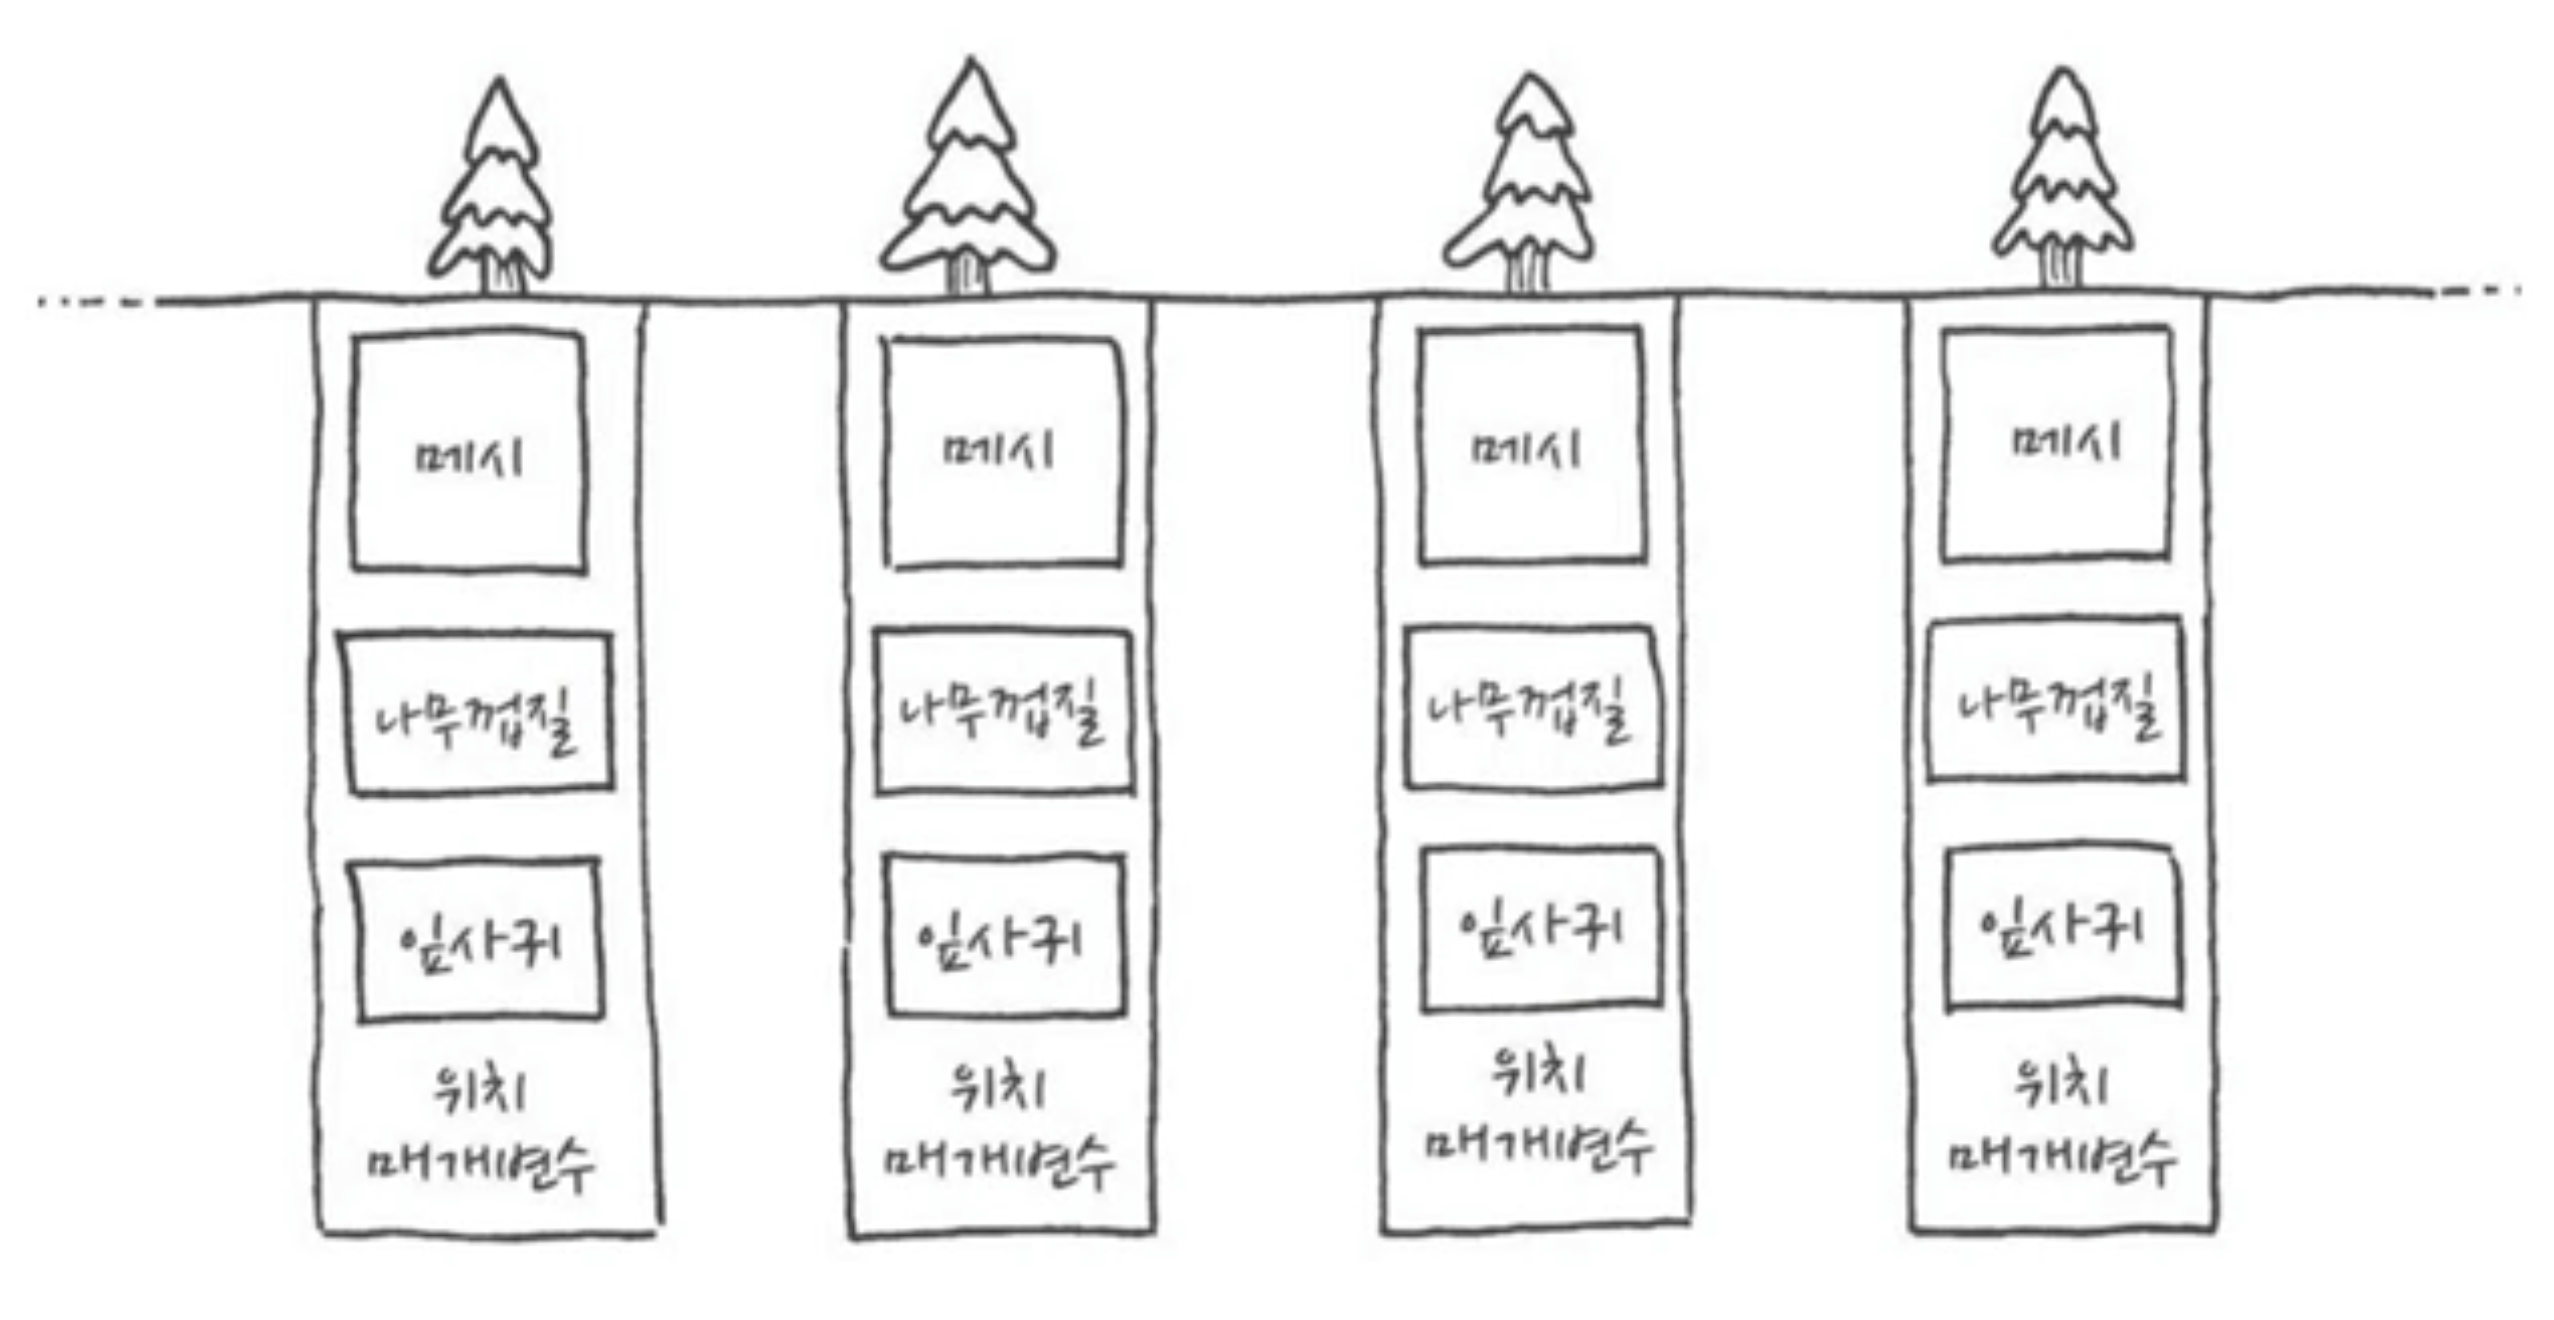 메시
나무껍질
잎사귀
위치
매개변수
메시
나무껍질
잎사귀
위치
매개변수
메시
나무껍질
잎사귀
위치
매개변수
메시
나무껍질
잎사귀
위치
매개변수